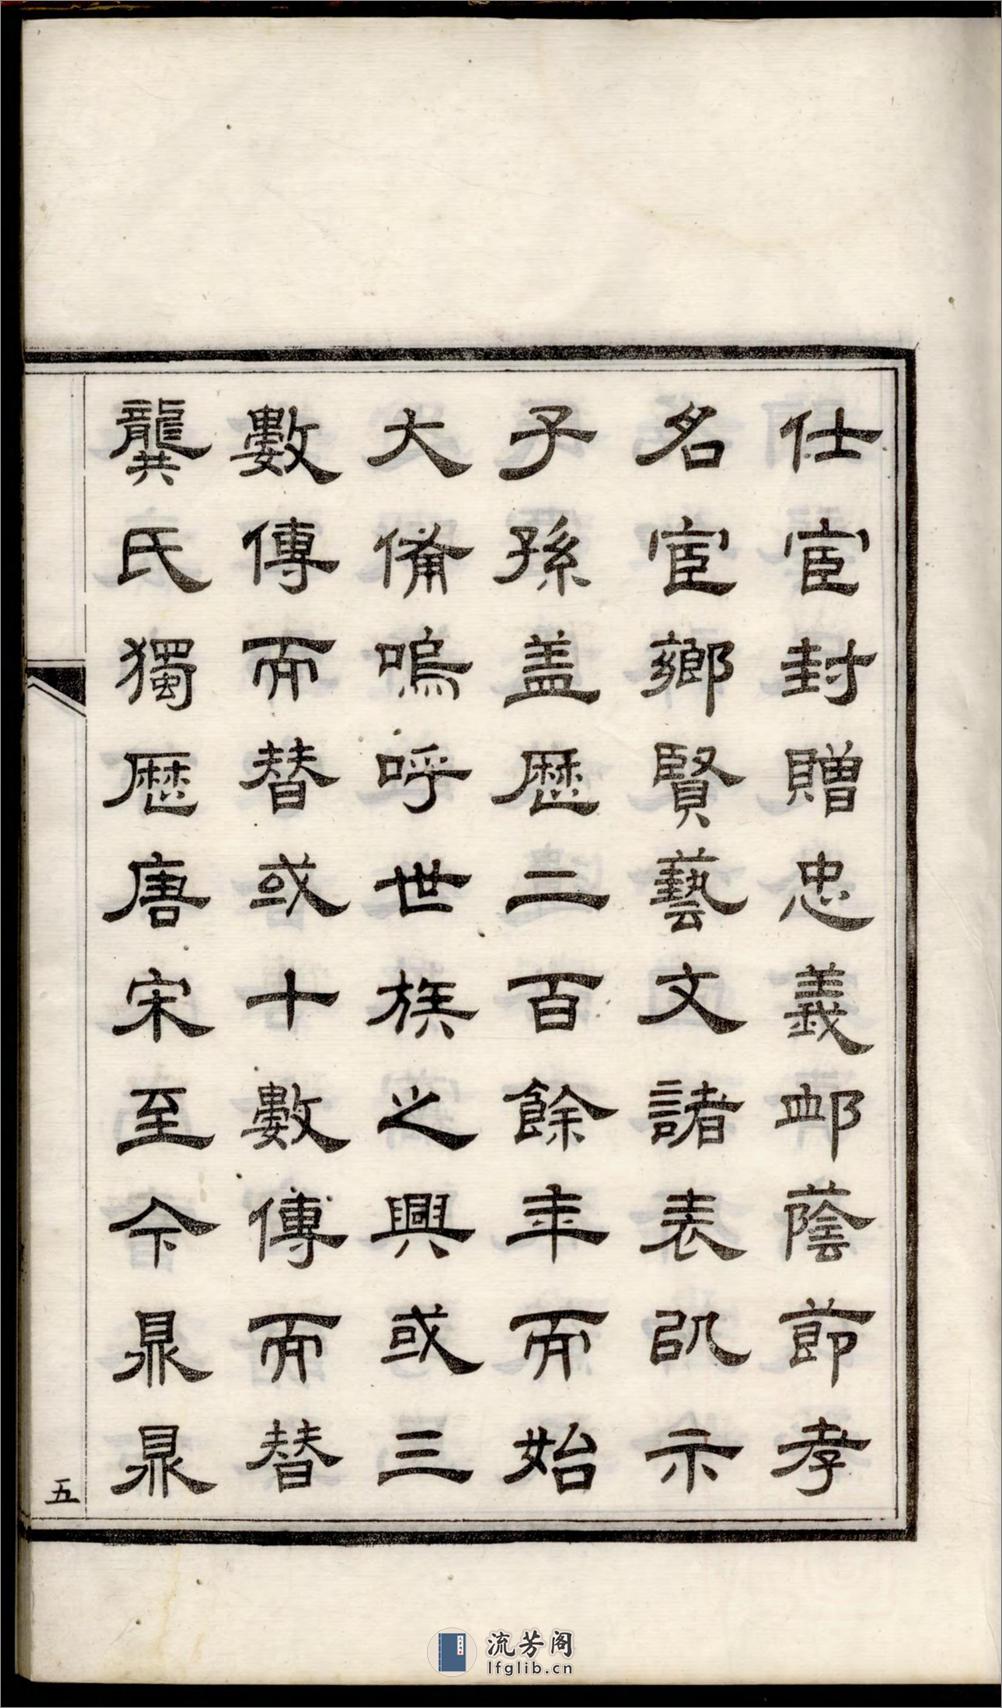 仕宦封贈忠義卹蔭節孝
名宦鄉賢藝文諸表以示
子孫盖歷二百餘年而始
大備嗚呼世族之興或三
數傳而替或十數傳而替
龔氏獨歷唐宋至今鼎鼎
五
流芳阁
lfglib.cn